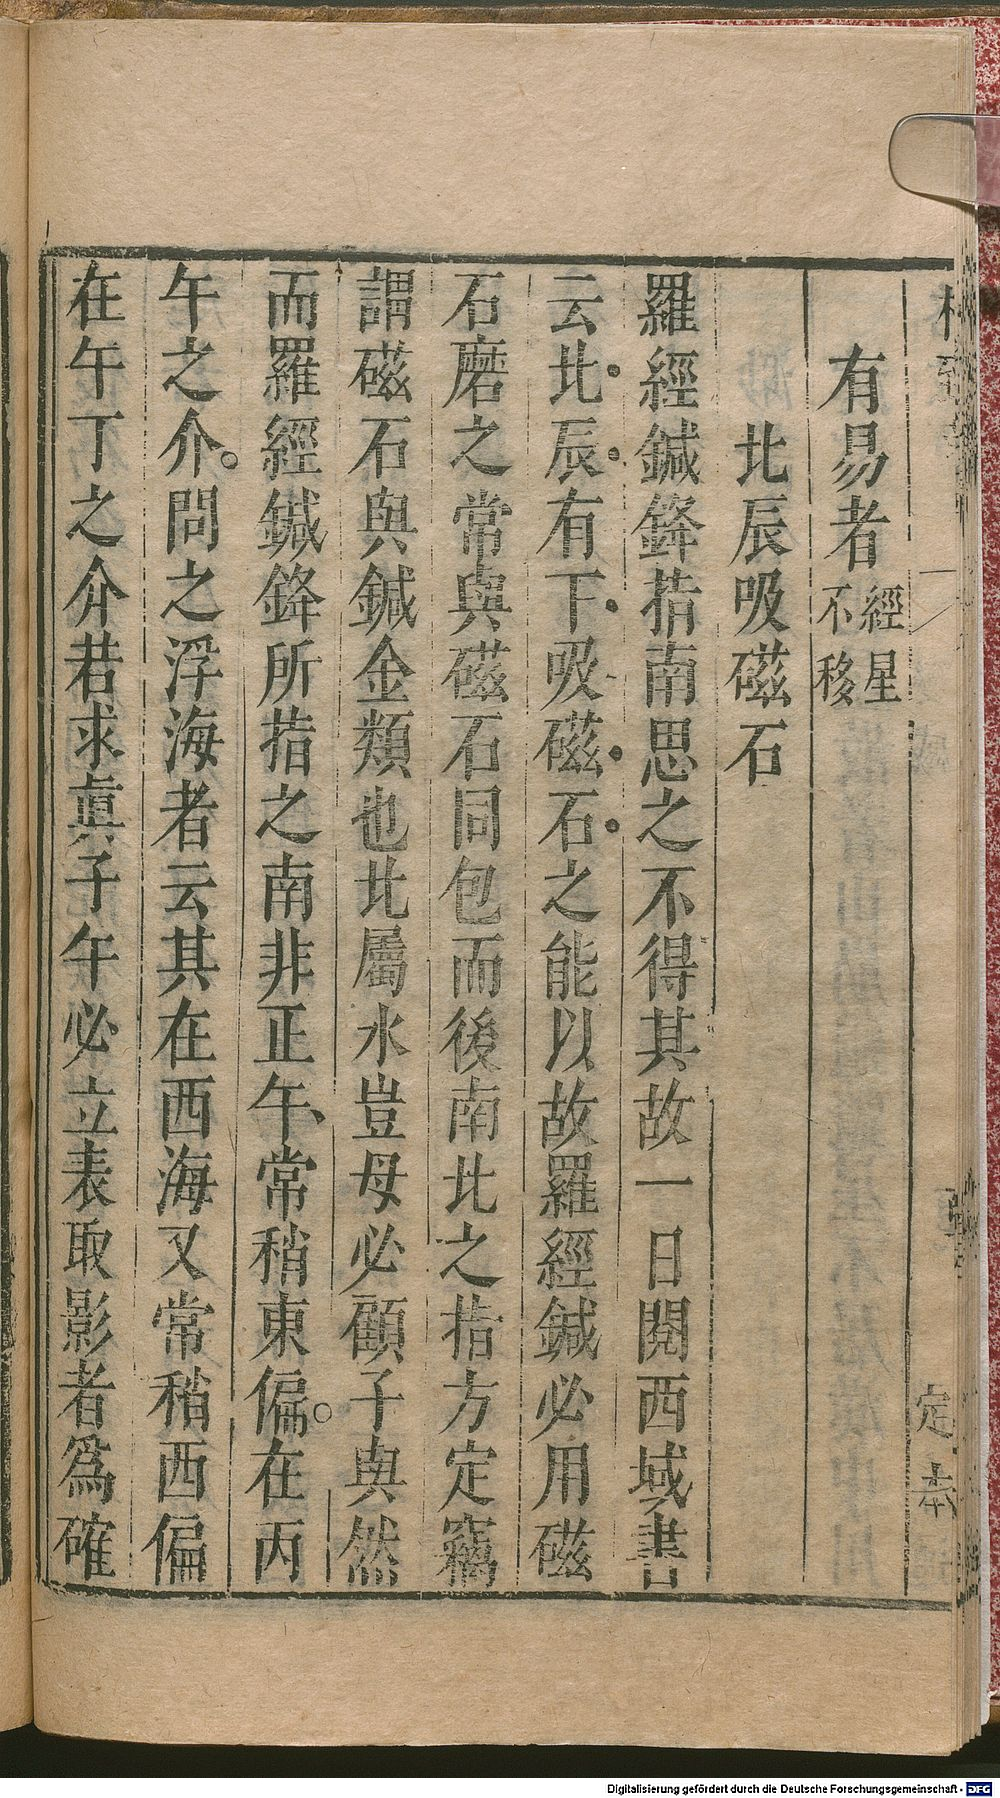 有易者經星不移
北辰吸磁石
羅經鍼鋒指南思之不得其故一日閱西域書
云北辰有下吸磁石之能以故羅經鍼必用磁
石磨之常與磁石同包而後南北之指方定竊
謂磁石與鍼金類也北屬水豈母必顧子與然
而羅經鍼鋒所指之南非正午、常稍東偏。在丙
午之介。問之浮海者云其在西海又常稍西偏
在午丁之介若求眞子午必立表取影者爲確
定本
Digitalisierung gefördert durch die Deutsche Forschungsgemeinschaft - DFG